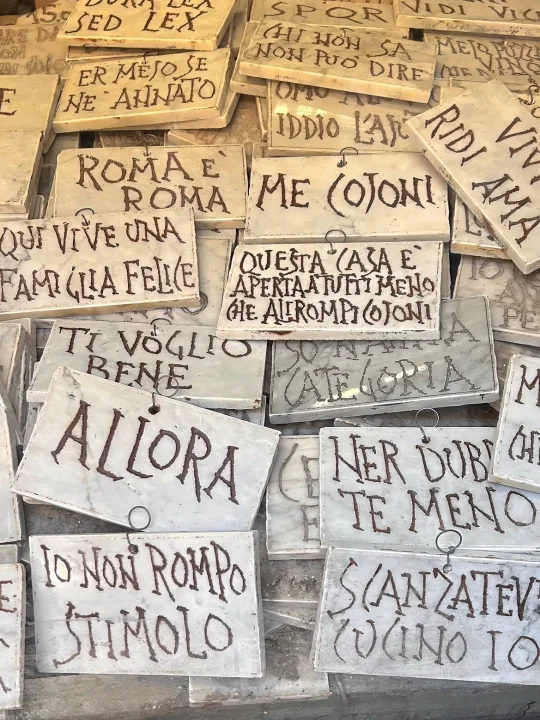 DURA LEX
SED LEX
SPQR
VIDI VICI
CHI NON SA
NON PUÒ DIRE
ER MEJO SE
NE ANNATO
IDDIO L'A
VIV
RIDI AMA
ROMA E'
ROMA
ME COJONI
QUI VIVE UNA
FAMIGLIA FELICE
QUESTA CASA E'
APERTA A TUTTI MENO
CHE AI ROMPI COJONI
TI VOGLIO
BENE
SO N'ANTRA
CATEGORIA
ALLORA
NER DUBB
TE MENO
IO NON ROMPO
STIMOLO
SCANZATEV
CUCINO IO